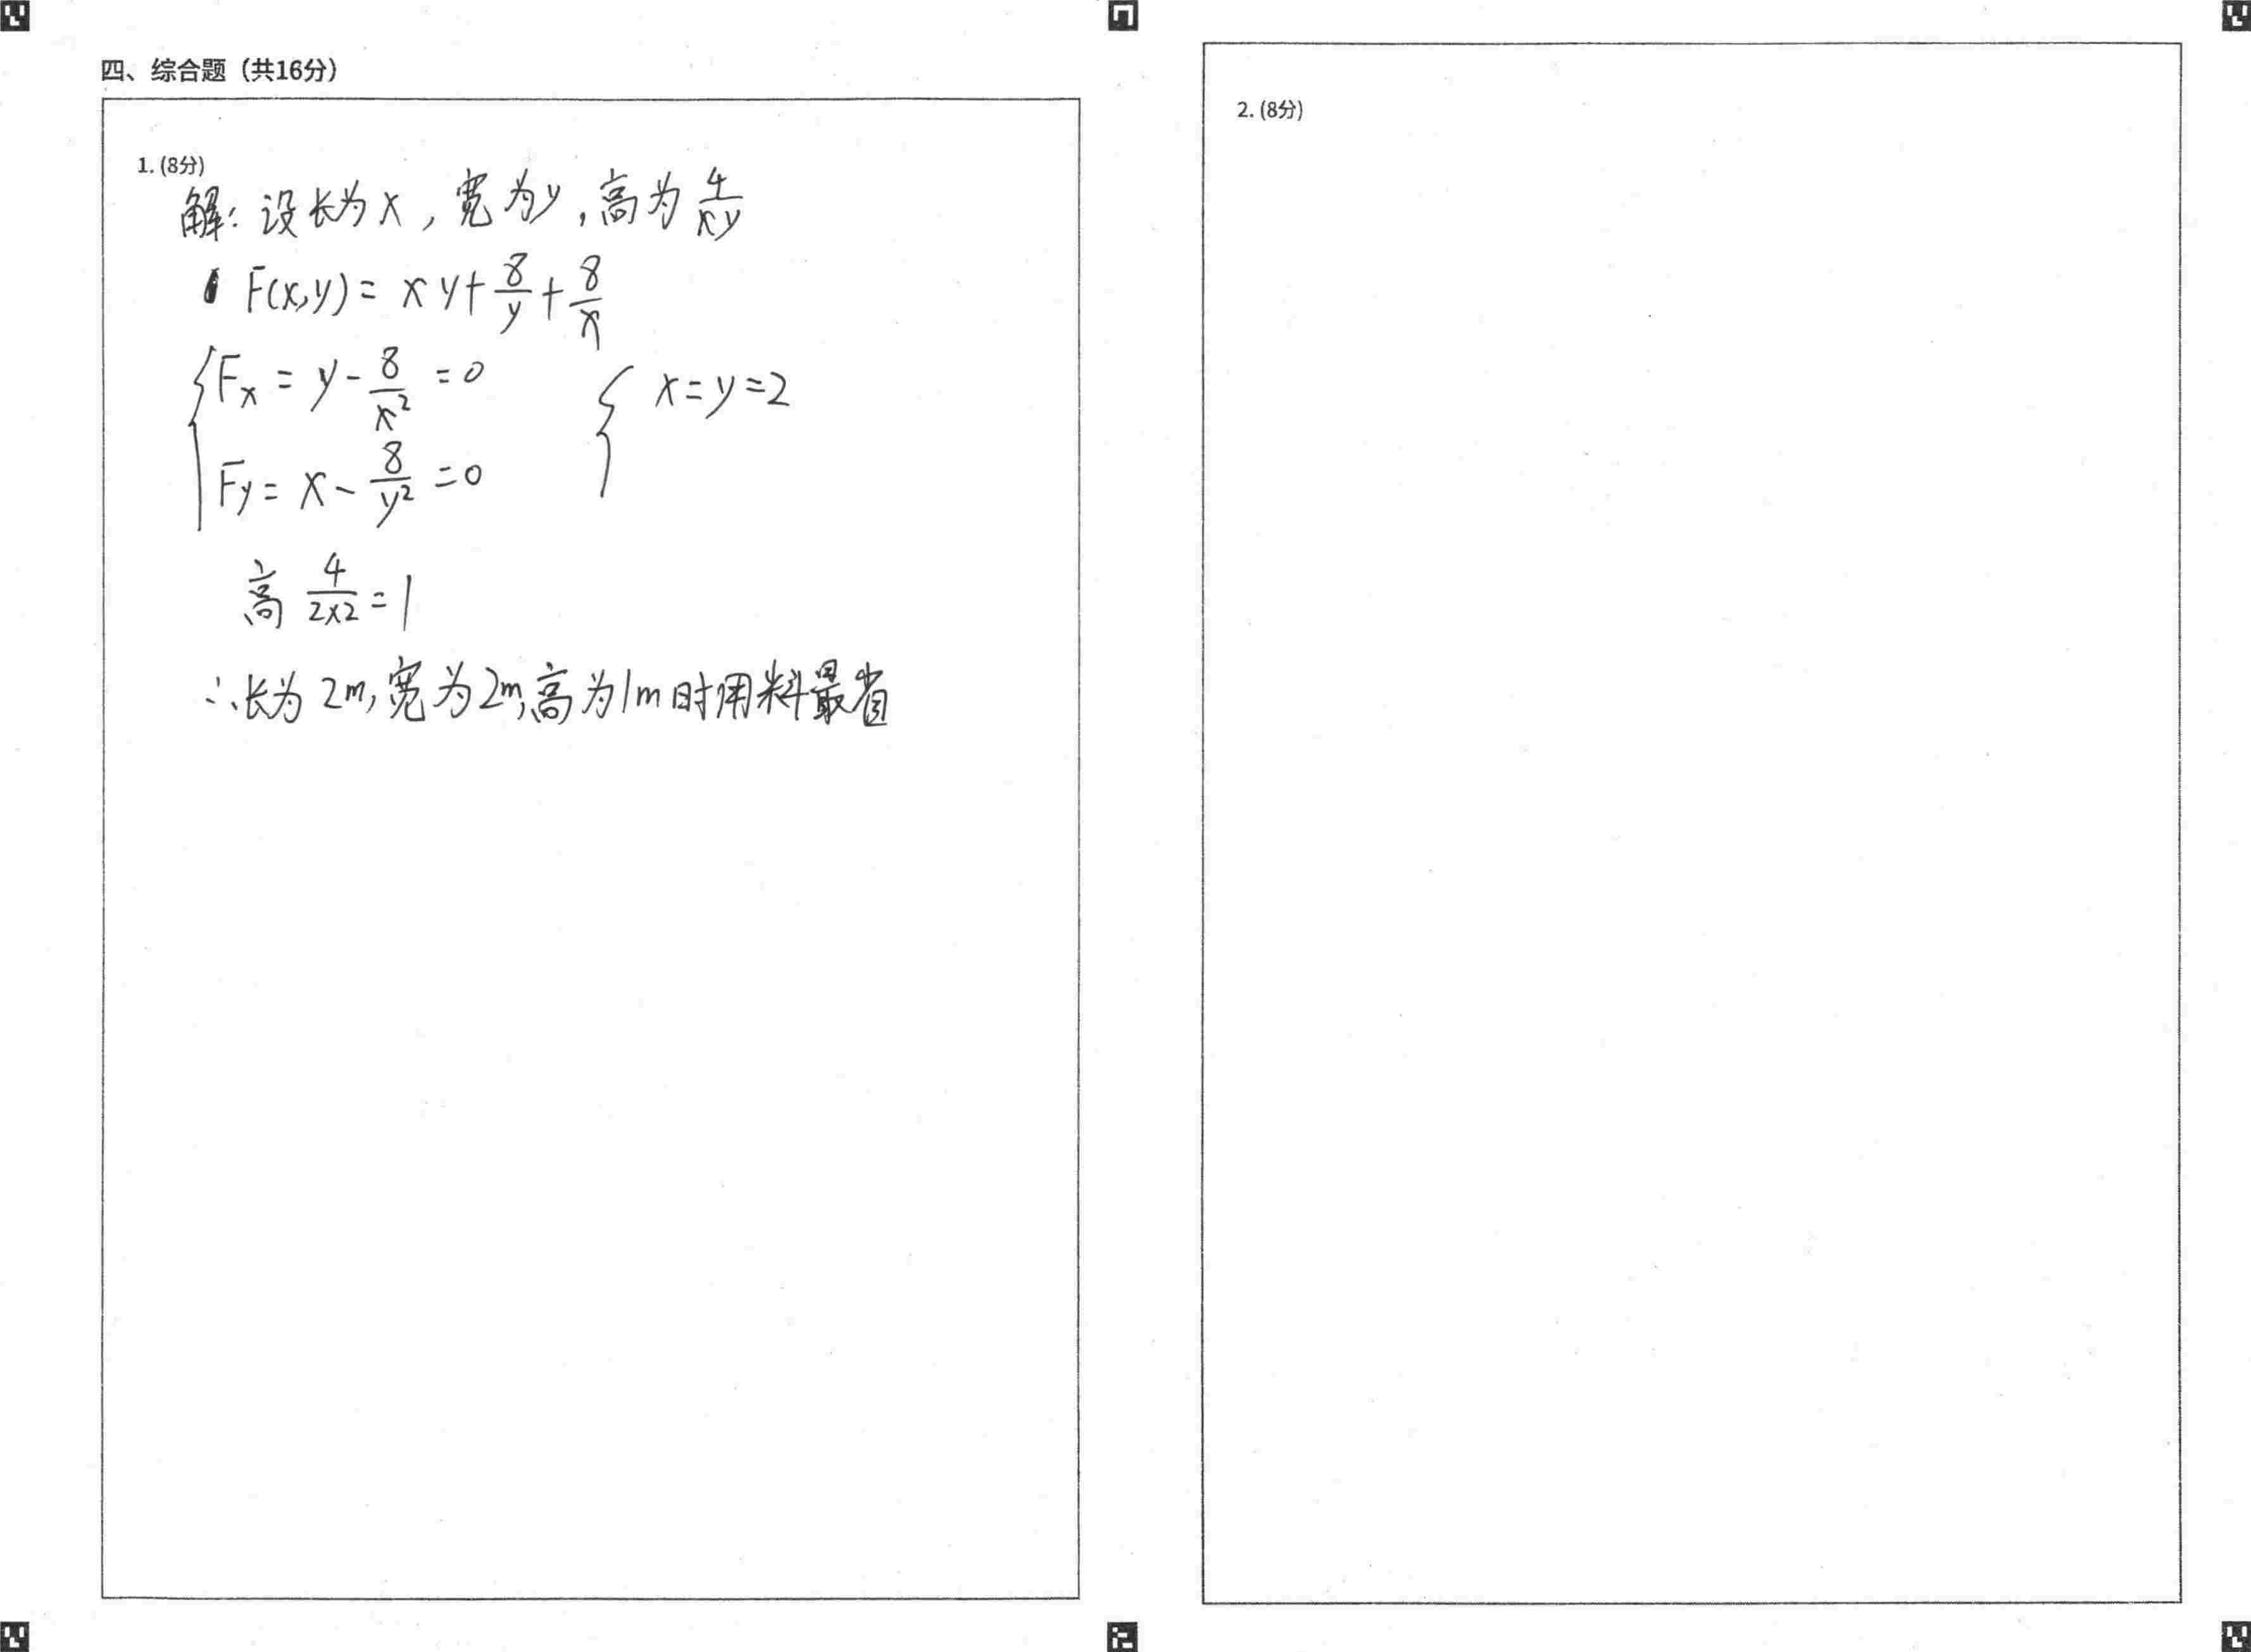 四、综合题（共16分）
1. (8分)
解：设长为x，宽为y，高为 4/xy
F(x,y) = xy + 8/y + 8/x
{ Fx = y - 8/x² = 0
Fy = x - 8/y² = 0
{ x = y = 2
高 4/2×2 = 1
∴长为2m,宽为2m,高为1m时用料最省
2. (8分)